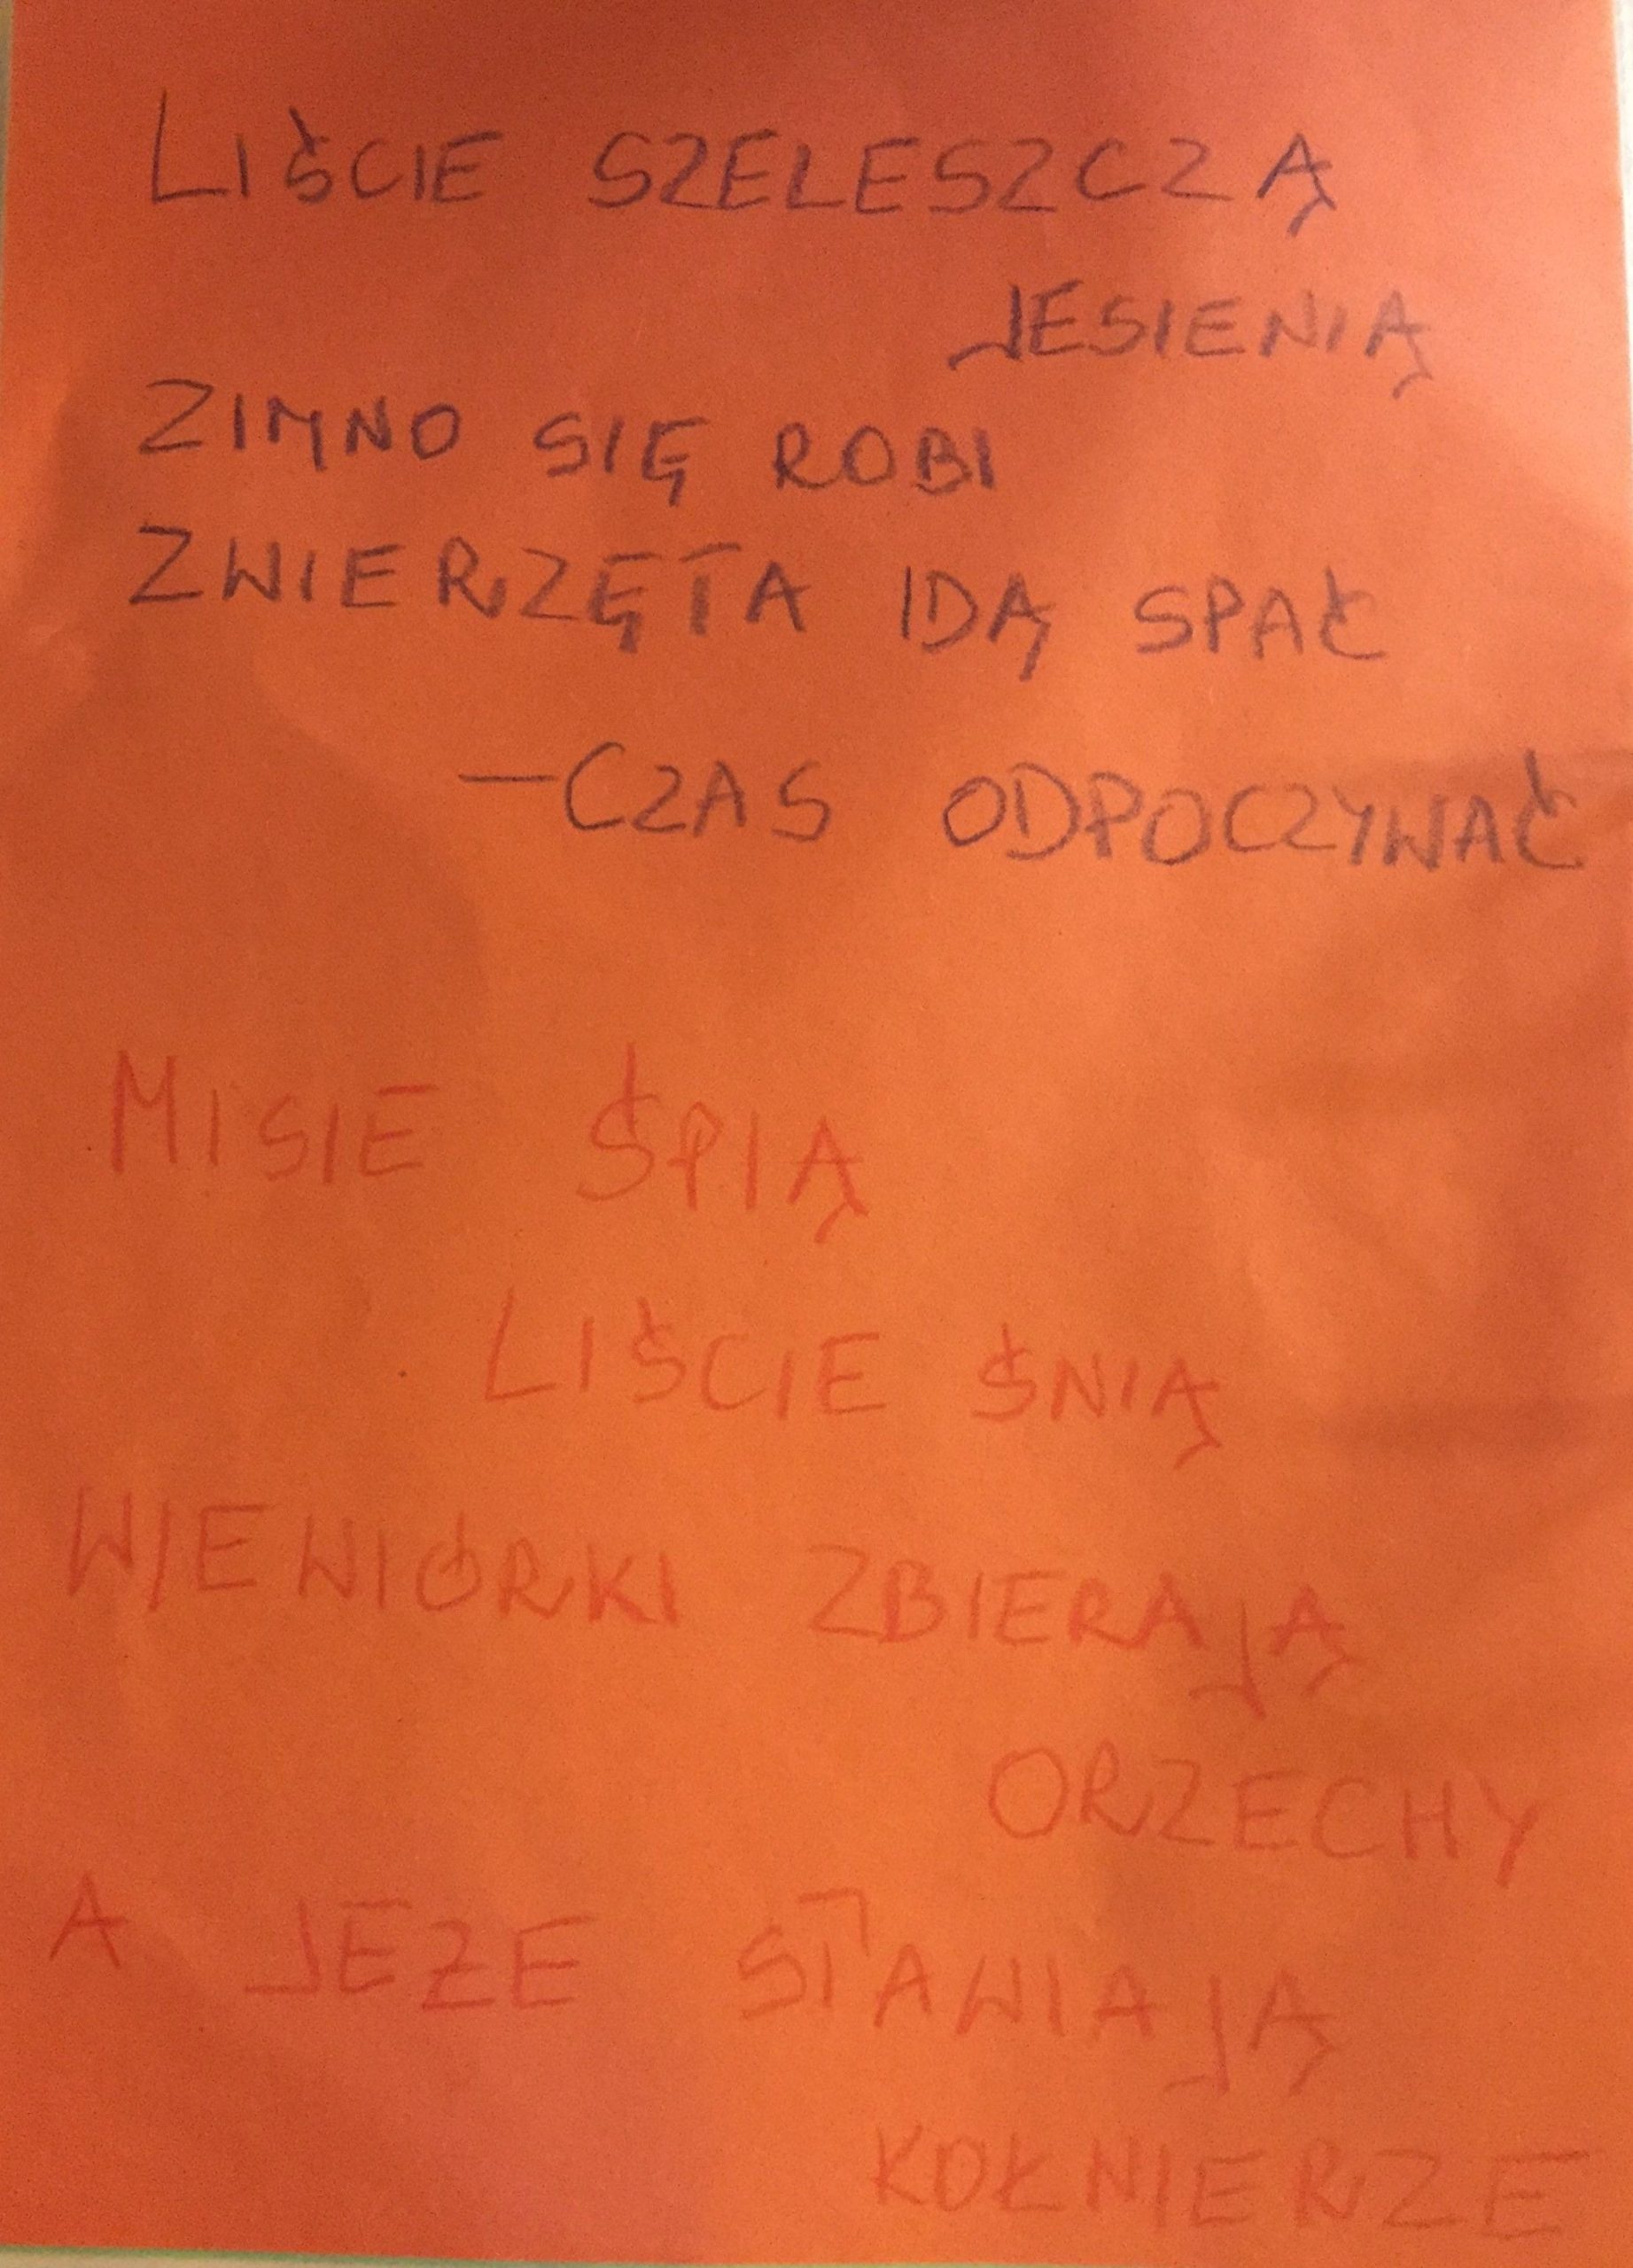 LIŚCIE SZELESZCZĄ
JESIENIĄ
ZIMNO SIĘ ROBI
ZWIERZĘTA IDĄ SPAĆ
—CZAS ODPOCZYWAĆ
MISIE ŚPIĄ
LIŚCIE ŚNIĄ
WIEWIÓRKI ZBIERAJĄ
ORZECHY
A JEZE STAWIAJĄ
KOŁNIERZE